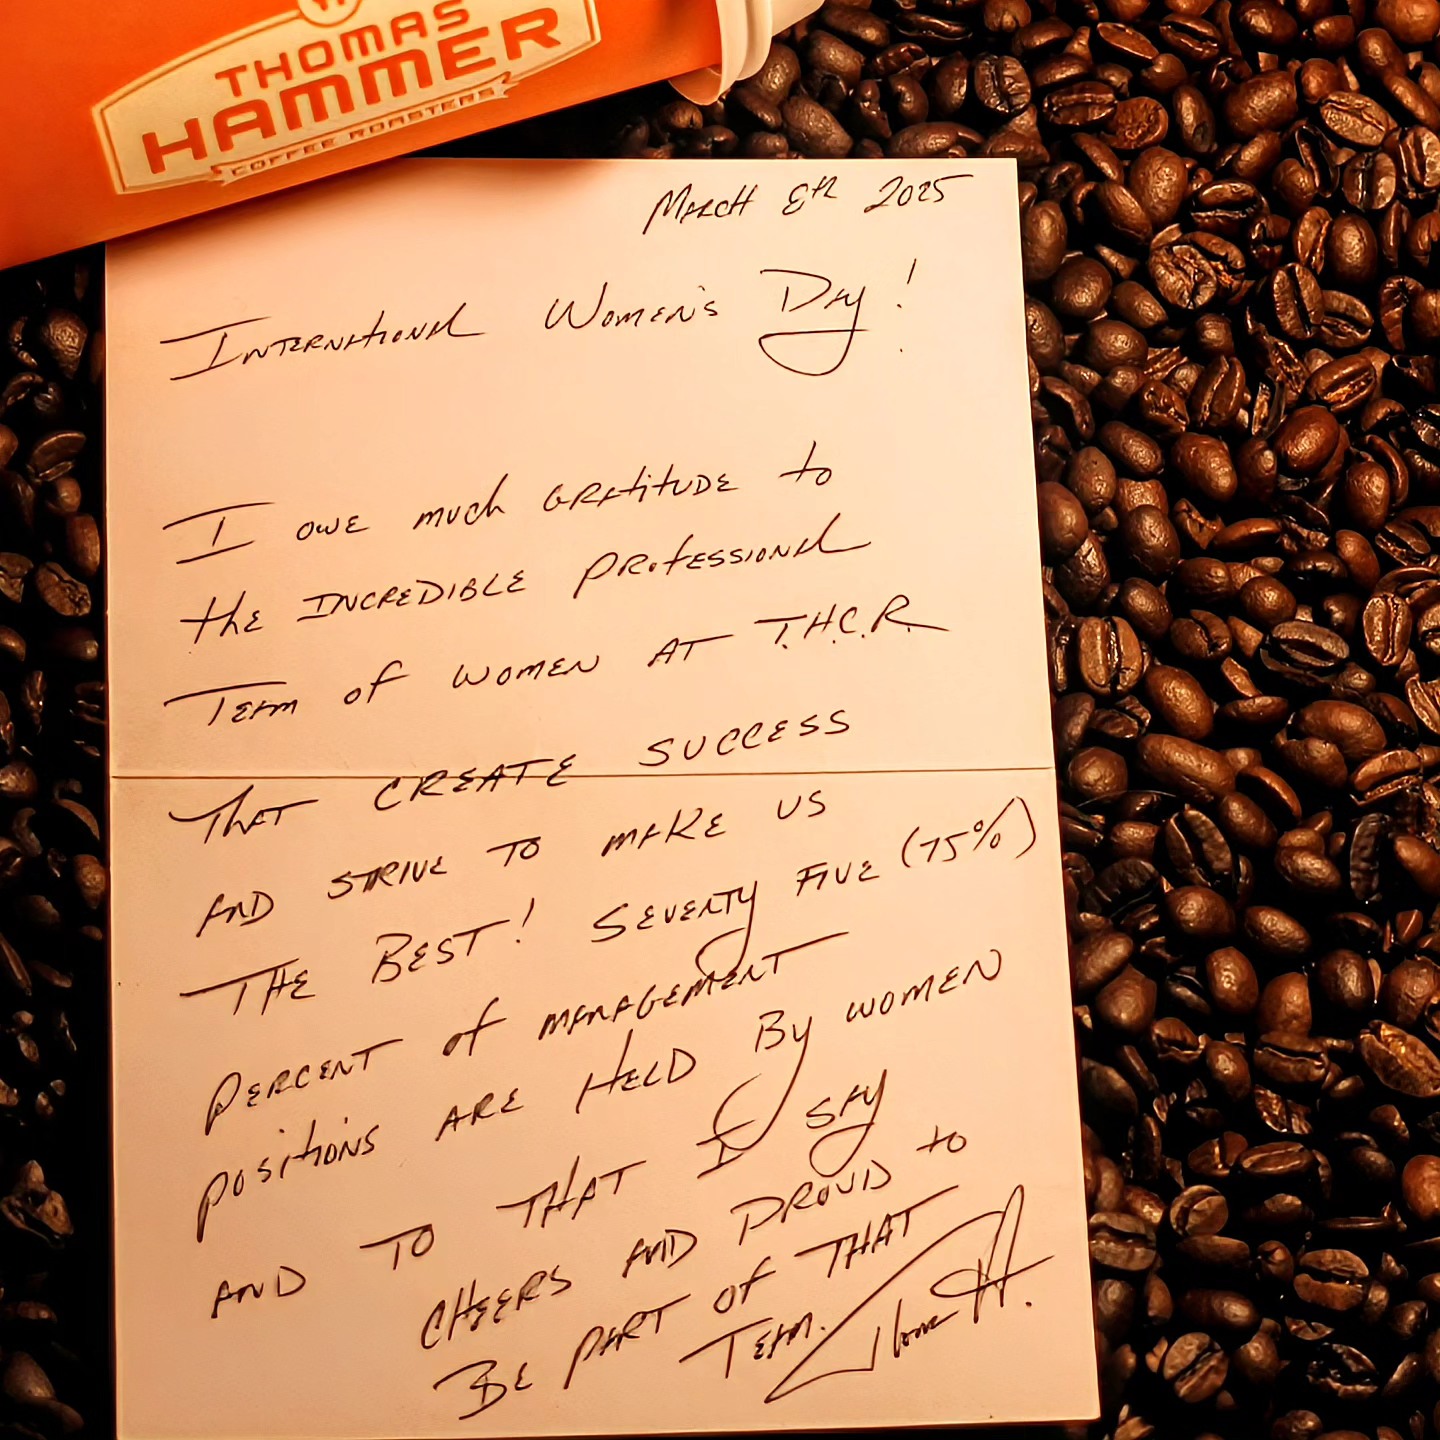 THOMAS
HAMMER
COFFEE ROASTERS
MARCH 8TH 2025
INTERNATIONAL WOMEN'S DAY!
I OWE much GRATITUDE to
the INCREDIBLE PROFESSIONAL
TEAM of WOMEN AT T.H.C.R.
THAT CREATE SUCCESS
AND STRIVE TO MAKE US
THE BEST! SEVENTY FIVE (75%)
PERCENT of MANAGEMENT
POSITIONS ARE HELD By WOMEN
AND TO THAT I SAY
CHEERS AND PROUD to
BE PART OF THAT
TEAM.
Thomas H.